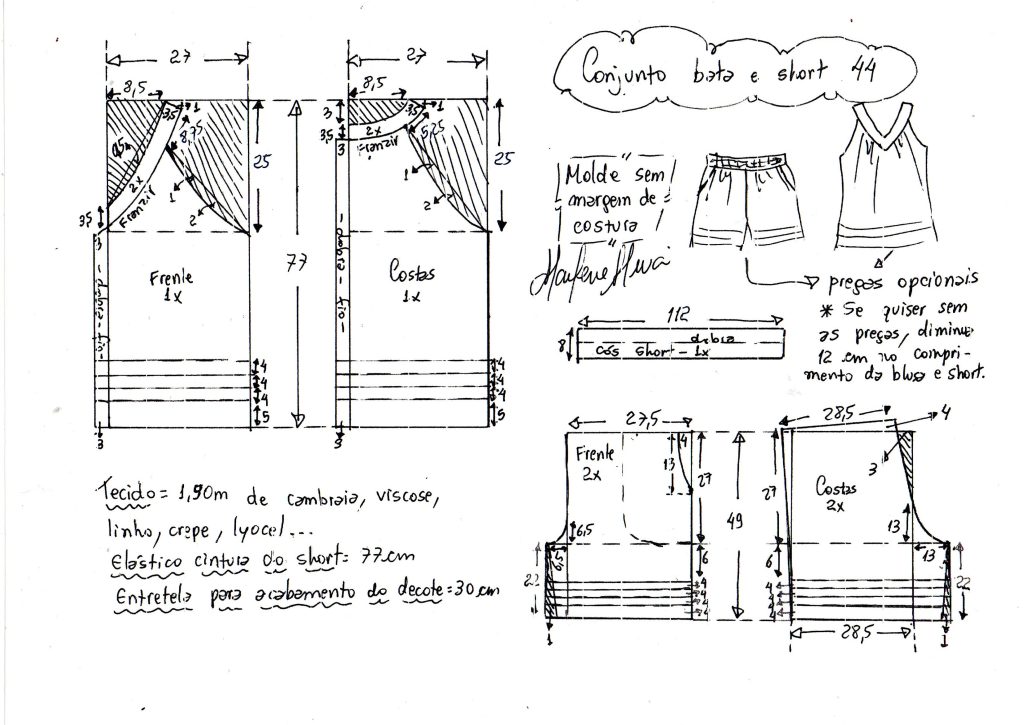 Conjunto bata e short 44
Molde sem
margem de
costura
Marlene Mukai
pregas opcionais
* Se quiser sem
as pregas, diminue
12 cm no compri-
mento da blusa e short.
27
8,5
1
3,5
8,75
0,5
2x
Franzir
1
2
25
3,5
3
Frente
1x
dobra - fio
4
4
4
5
3
77
27
8,5
3
3,5
3
1
3,5
5,25
2x
Franzir
1
2
25
Costas
1x
dobra - fio
4
4
4
5
3
112
8
dobra
cós short - 1x
27,5
Frente
2x
4
13
27
6,5
6,5
22
6
4
4
4
4
1
49
28,5
4
3
Costas
2x
27
13
13
6
4
4
4
4
22
28,5
1
Tecido = 1,90m de cambraia, viscose,
linho, crepe, lyocel...
Elástico cintura do short = 77cm
Entretela para acabamento do decote = 30 cm